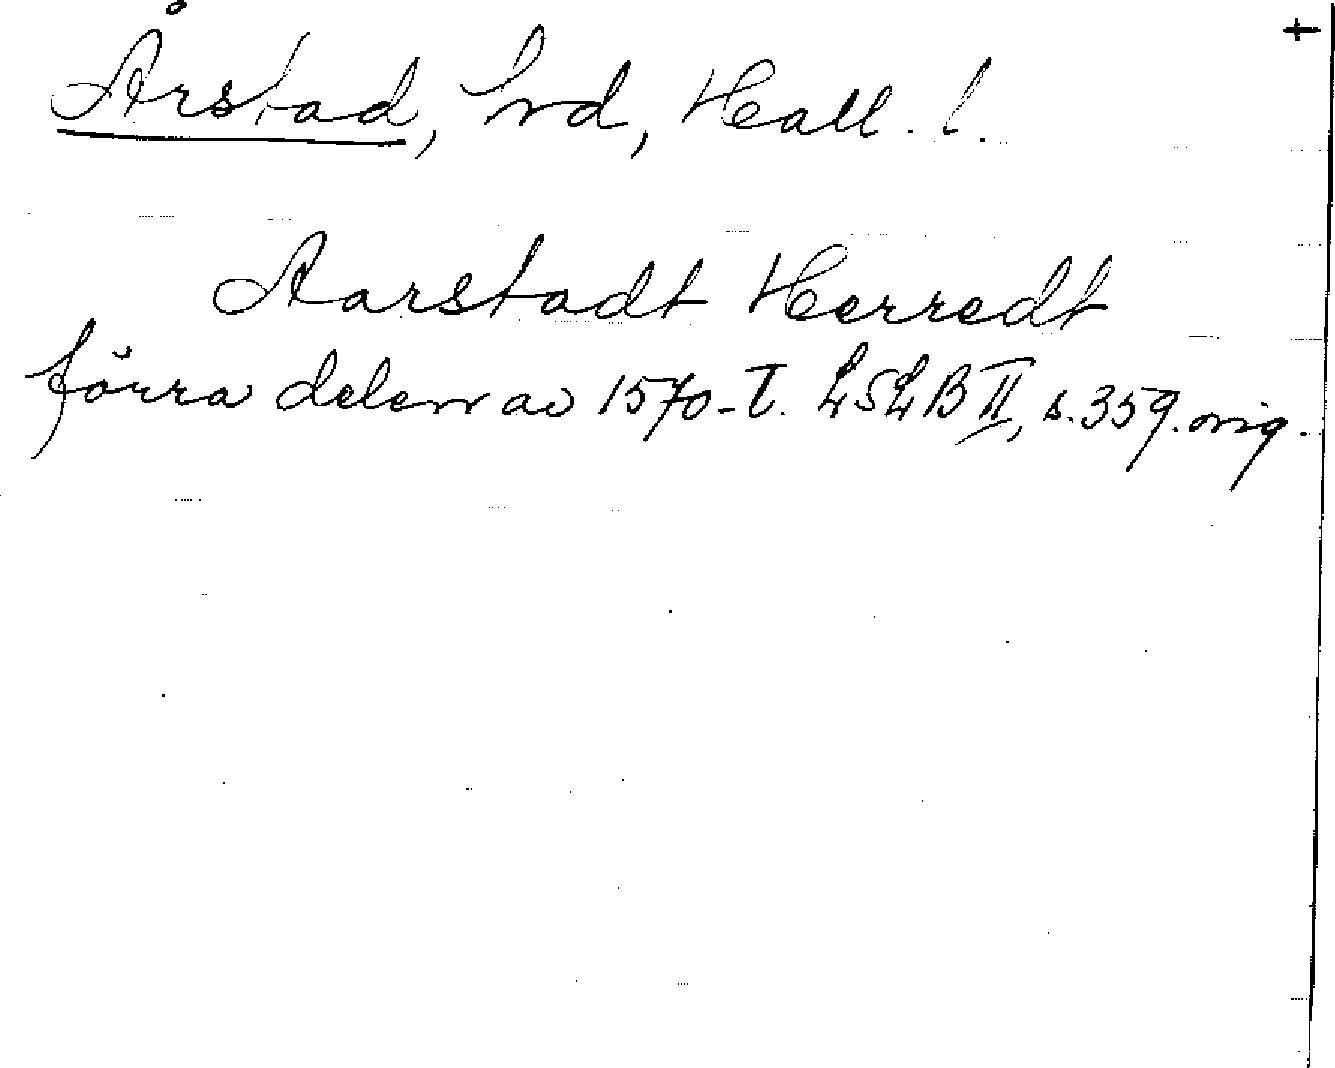 Årstad, hrd, Hall. l. +
Aarstadt Herredt
förra delen av 1570-t. LSLB II, s. 359. orig.